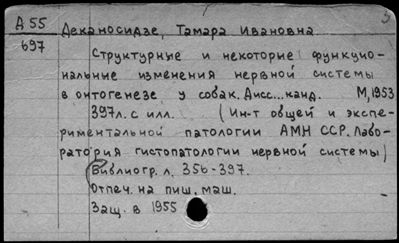 А 55 Деканосидзе, Тамара Ивановна
697
Структурные и некоторые функцио-
нальные изменения нервной системы
в онтогенезе у собак. Дисс... канд. М, 1953
397л. с илл. (Ин-т общей и экспе-
риментальной патологии АМН ССР. Лабо-
ратория гистопатологии нервной системы)
Библиогр. л. 356-397.
Отпеч. на пиш. маш.
Защ. в 1955